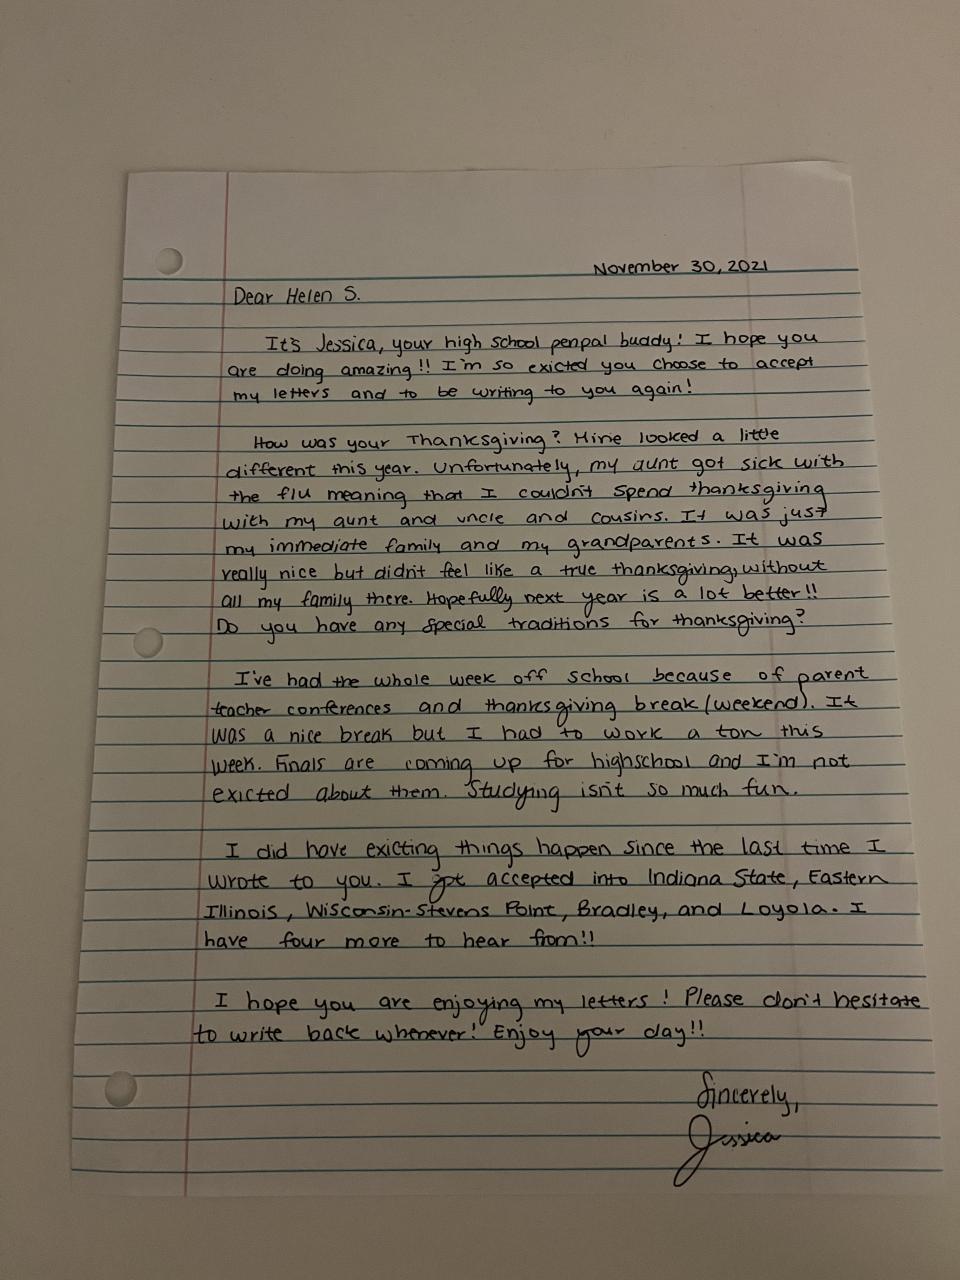 November 30, 2021
Dear Helen S.
It's Jessica, your high school penpal buddy! I hope you
are doing amazing!! I'm so exicted you choose to accept
my letters and to be writing to you again!
How was your Thanksgiving? Mine looked a little
different this year. Unfortunately, my aunt got sick with
the flu meaning that I couldn't spend thanksgiving
with my aunt and uncle and cousins. It was just
my immediate family and my grandparents. It was
really nice but didn't feel like a true thanksgiving, without
all my family there. Hopefully next year is a lot better!!
Do you have any special traditions for thanksgiving?
I've had the whole week off school because of parent
teacher conferences and thanksgiving break (weekend). It
was a nice break but I had to work a ton this
week. Finals are coming up for highschool and I'm not
exicted about them. Studying isn't so much fun.
I did have exicting things happen since the last time I
wrote to you. I got accepted into Indiana State, Eastern
Illinois, Wisconsin-Stevens Point, Bradley, and Loyola. I
have four more to hear from!!
I hope you are enjoying my letters! Please don't hesitate
to write back whenever! Enjoy your day!!
Sincerely,
Jessica